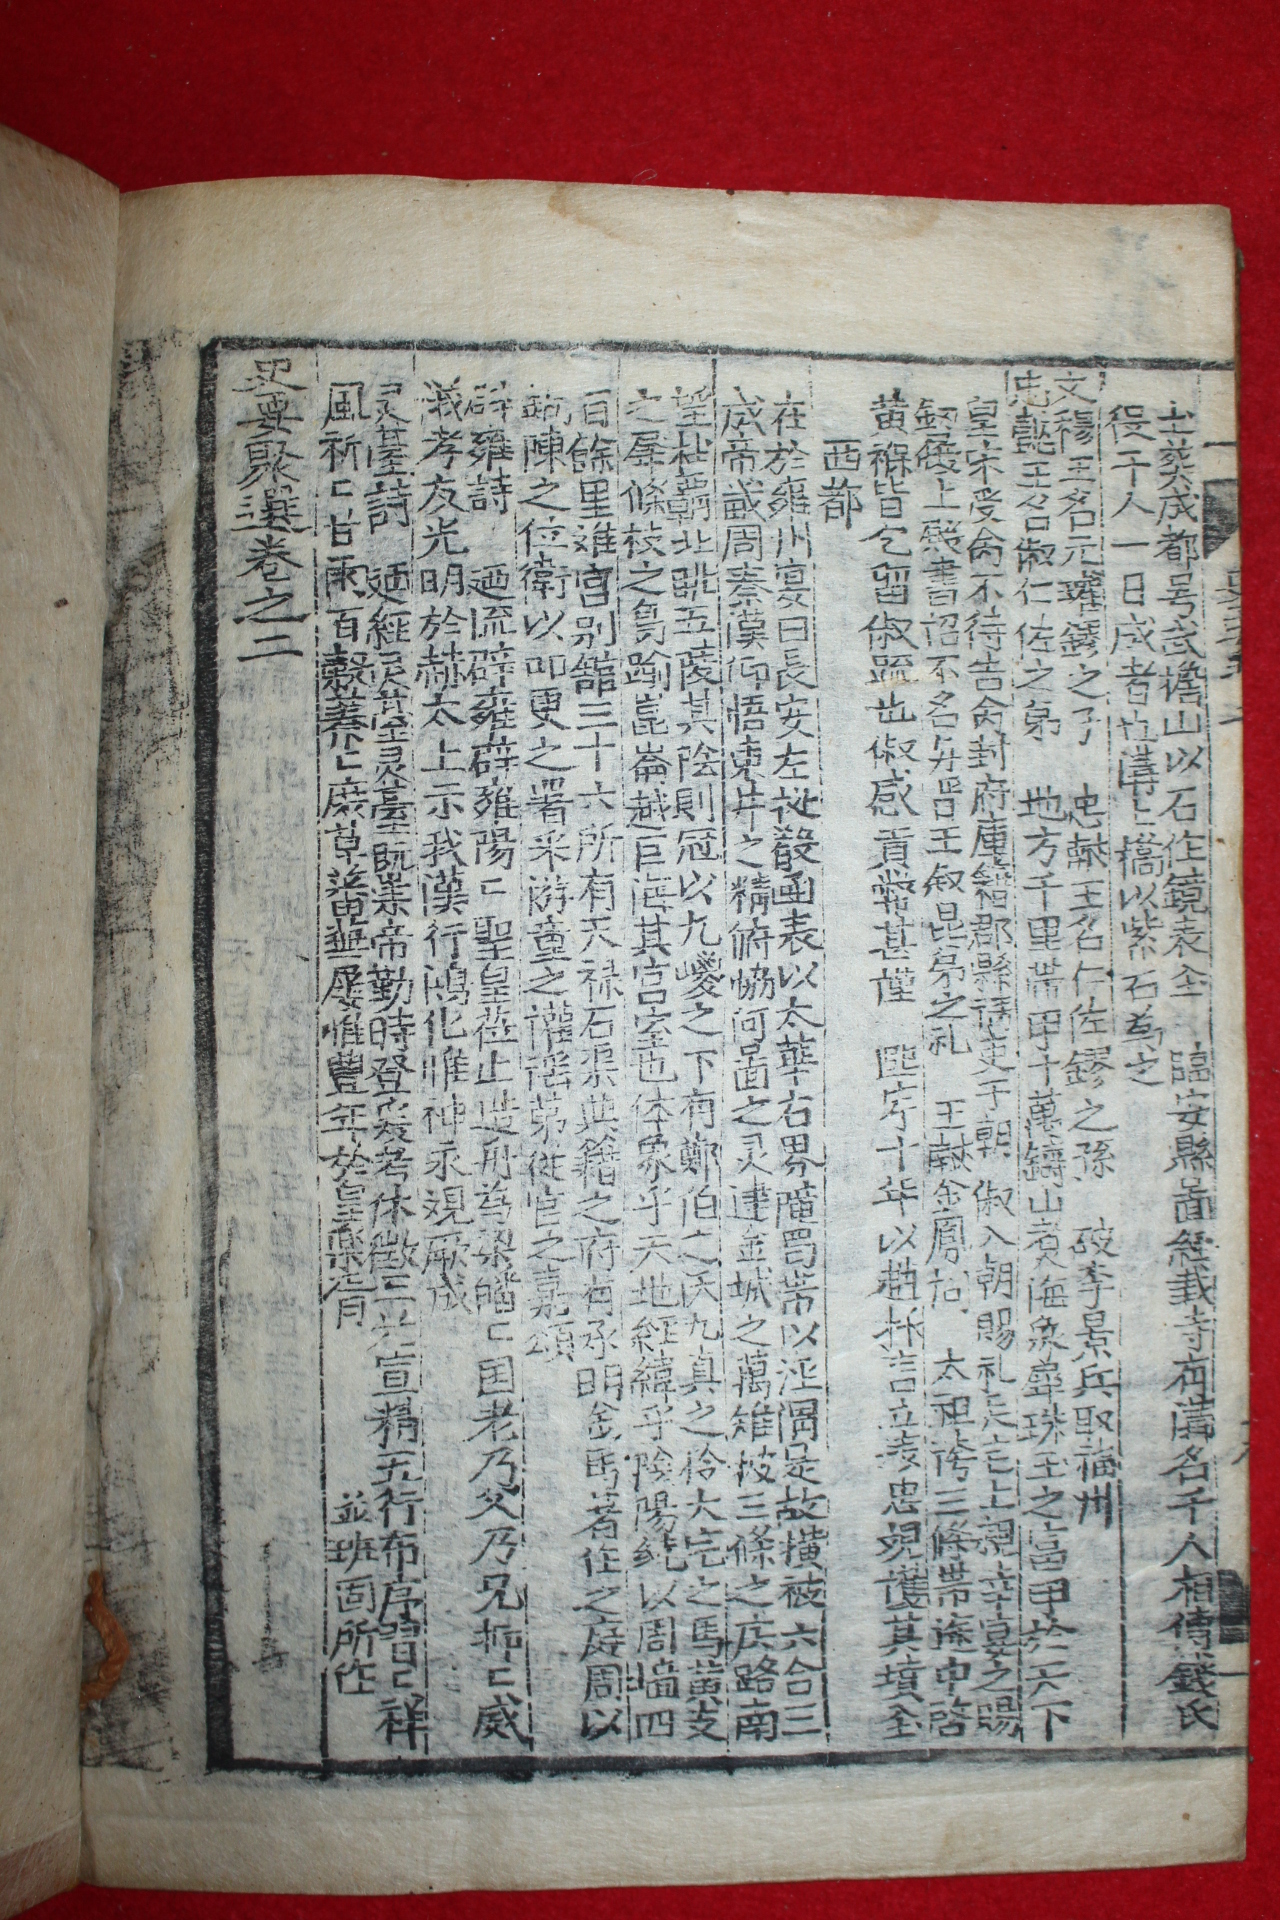 土葬成都号武擔山以石作鏡表全 臨安縣啚經戟寺有溝名千人相傳錢氏
役千人一日成者也溝上橋以紫石為之
文穆王名元瓘鏐之子 忠献王名仁佐鏐之孫 破李景兵取福州
忠懿王名俶仁佐之弟 地方千里帶甲十萬鑄山煮海象犀珠玉之富甲於六下
皇宋受命不待告命封府庫籍郡縣請吏于朝 俶入朝賜礼 上 宴之賜
劒履上殿書詔不名 晋王叙昆弟之礼 王献金鳳 太祖 三條帶
黄 皆乞留俶 也俶感貢 甚謹 熙寧十年以趙抃言立表忠觀護其墳
西都
在於雍州寔曰長安左㨿殽函表以太華右界隴蜀帶以涇渭是故橫被六合三
成帝畿周秦漢仰悟東井之精俯恊河啚之灵建金城之萬雉披三條之庆路南
望杜覇北眺五陵其陰則冠以九嵕之下有鄭伯之沃九真之 大宛之馬黄支
之犀條枝之鳥踰崑崙越巨海其宮室也体象乎天地經緯乎陰陽繞以周墻四
百餘里离宫别舘三十六所有天禄石渠典籍之府有承明金馬著作之庭周以
鉤陳之位衛以 更之署采游童之讙謡第從官之嘉頌
辟雍詩 廼流辟雍辟雍陽匕聖皇莅止造舟為梁皤匕国老乃父乃兄抑匕威
儀孝友光明於赫太上示我漢行鴻化惟神永觀厥成
灵䑓詩 廼經灵䑓灵䑓既崇帝勤時登爰考休徵三光宣精五行布序習匕祥
風祈匕甘雨百穀蓁匕庶草蕃蕪屢惟豊年於皇樂胥 並班固所作
史要聚選卷之二